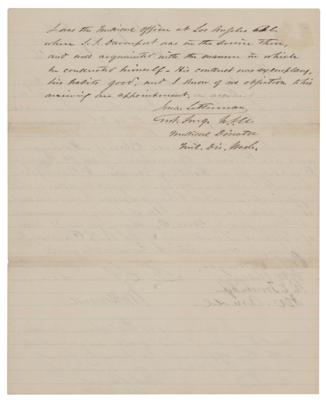 I was the Medical officer at Los Angeles Cal.
where S. P. Davenport was in the service there,
and well acquainted with the manner in which
he conducted himself. His conduct was exemplary,
his habits good, and I know of no objection to his
receiving an appointment.
Jona. Letterman,
Asst. Surg. U.S.A.
Medical Director
Mil. Dis. Wash.